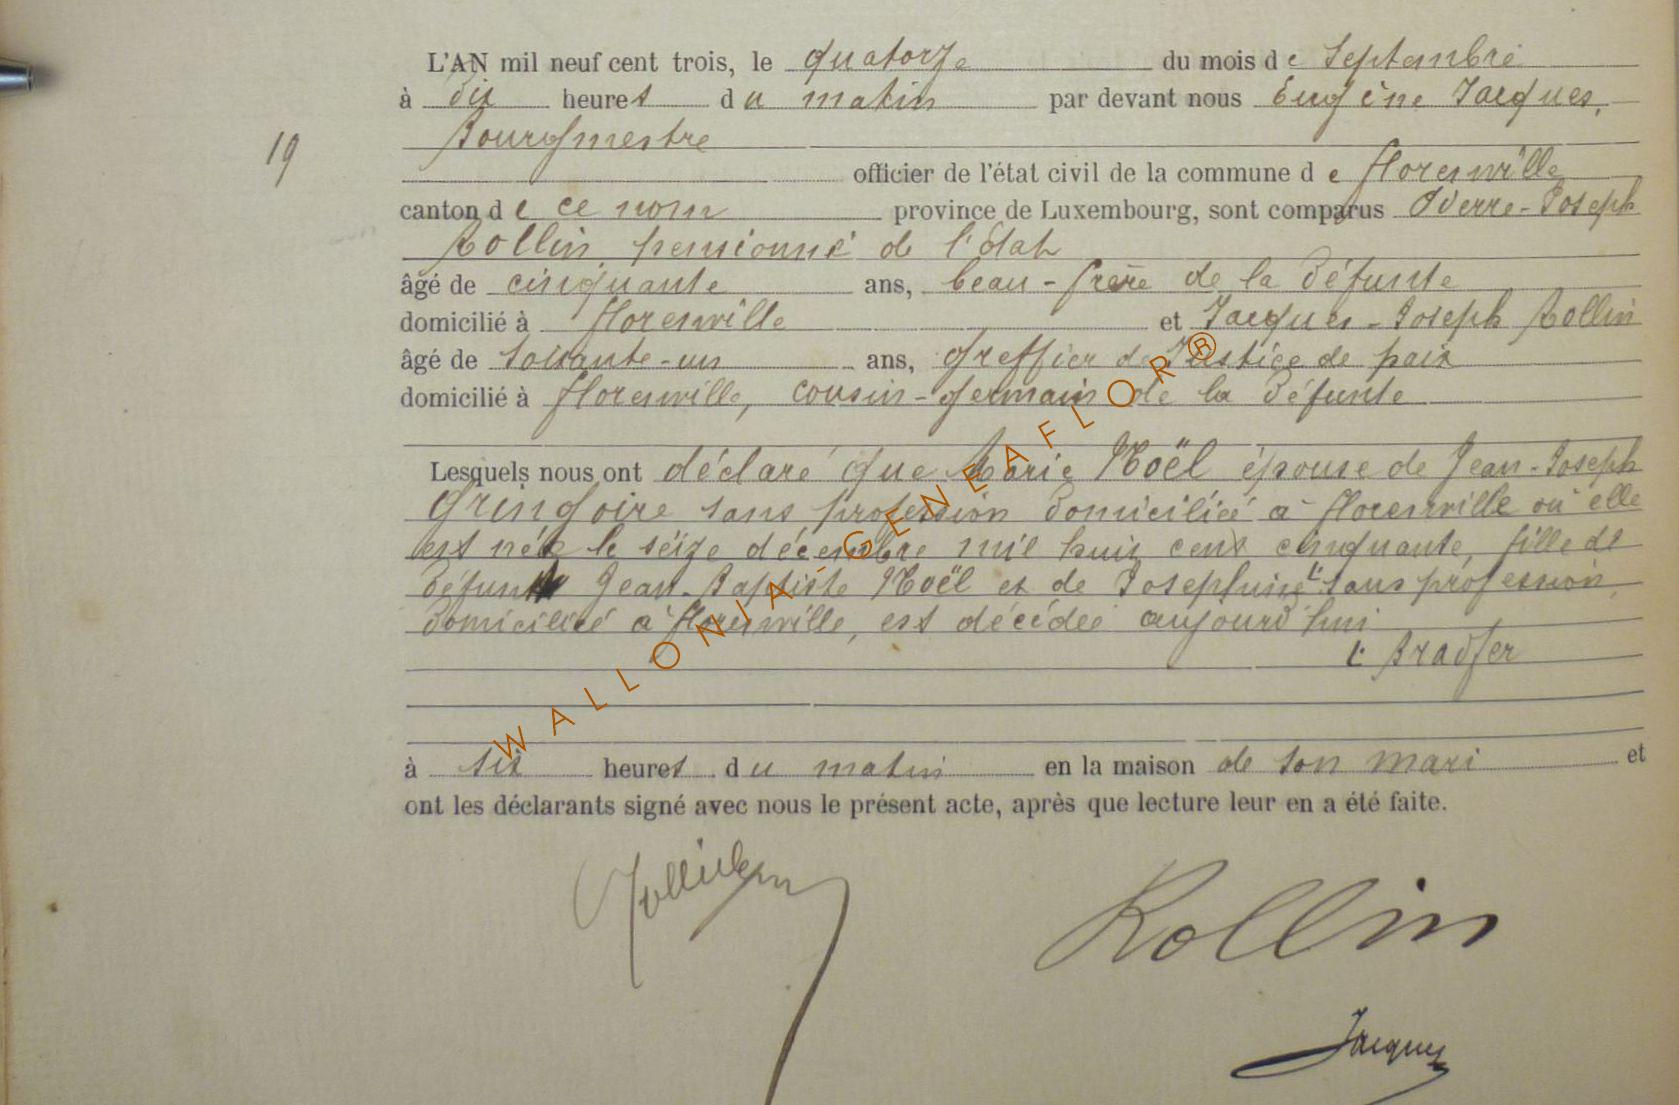 L'AN mil neuf cent trois, le quatorze du mois de Septembre
à dix heures du matin par devant nous Eugène Jacques,
Bourgmestre
19
officier de l'état civil de la commune de Florenville
canton de ce nom province de Luxembourg, sont comparus Pierre-Joseph
Rollin pensionné de l'état
âgé de cinquante ans, beau-frère de la défunte
domicilié à Florenville et Jacques-Joseph Rollin
âgé de soixante-un ans, Greffier de Justice de paix
domicilié à Florenville, cousin-germain de la défunte
Lesquels nous ont déclaré que Marie Noël épouse de Jean-Joseph
Gringoire sans profession domiciliée à Florenville où elle
est née le seize décembre mil huit cent cinquante, fille de
défunt Jean-Baptiste Noël et de Josephine L: sans profession,
domiciliée à Florenville, est décédée aujourd'hui
L: Bradfer
à six heures du matin en la maison de son mari et
ont les déclarants signé avec nous le présent acte, après que lecture leur en a été faite.
Rollin
Jacques
WALLONIA - GENEAFLOR®